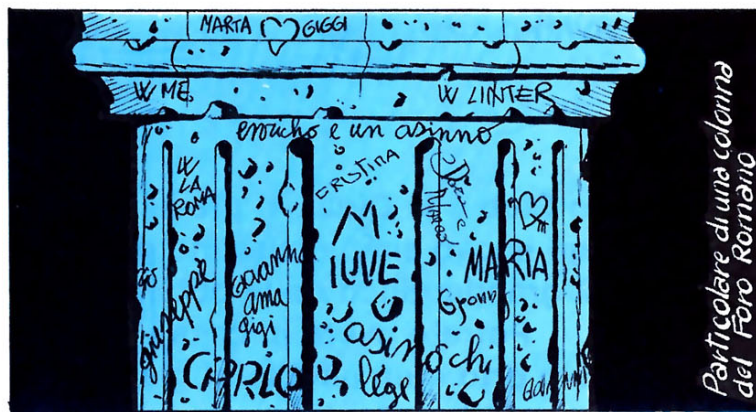 MARTA GIGGI
W ME
W LINTER
erricho e un asinno
W
LA
ROMA
CRISTINA
M
IUVE
MARIA
giuseppe
Giovanna
ama
gigi
CARLO
asino chi
lege
Particolare di una colonna
del Foro Romano